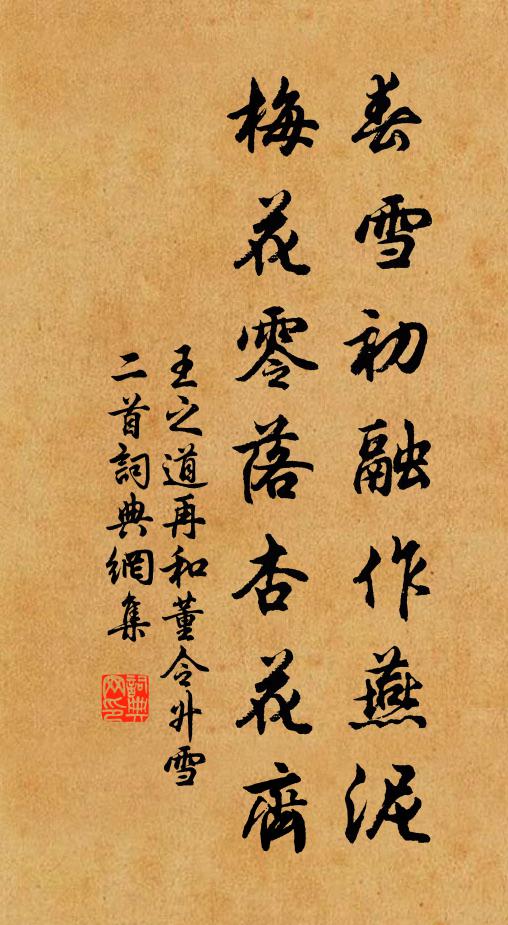 春雪初融作燕泥
梅花零落杏花齊
王之道再和董令升雪
二首詞典網集
詞典網印